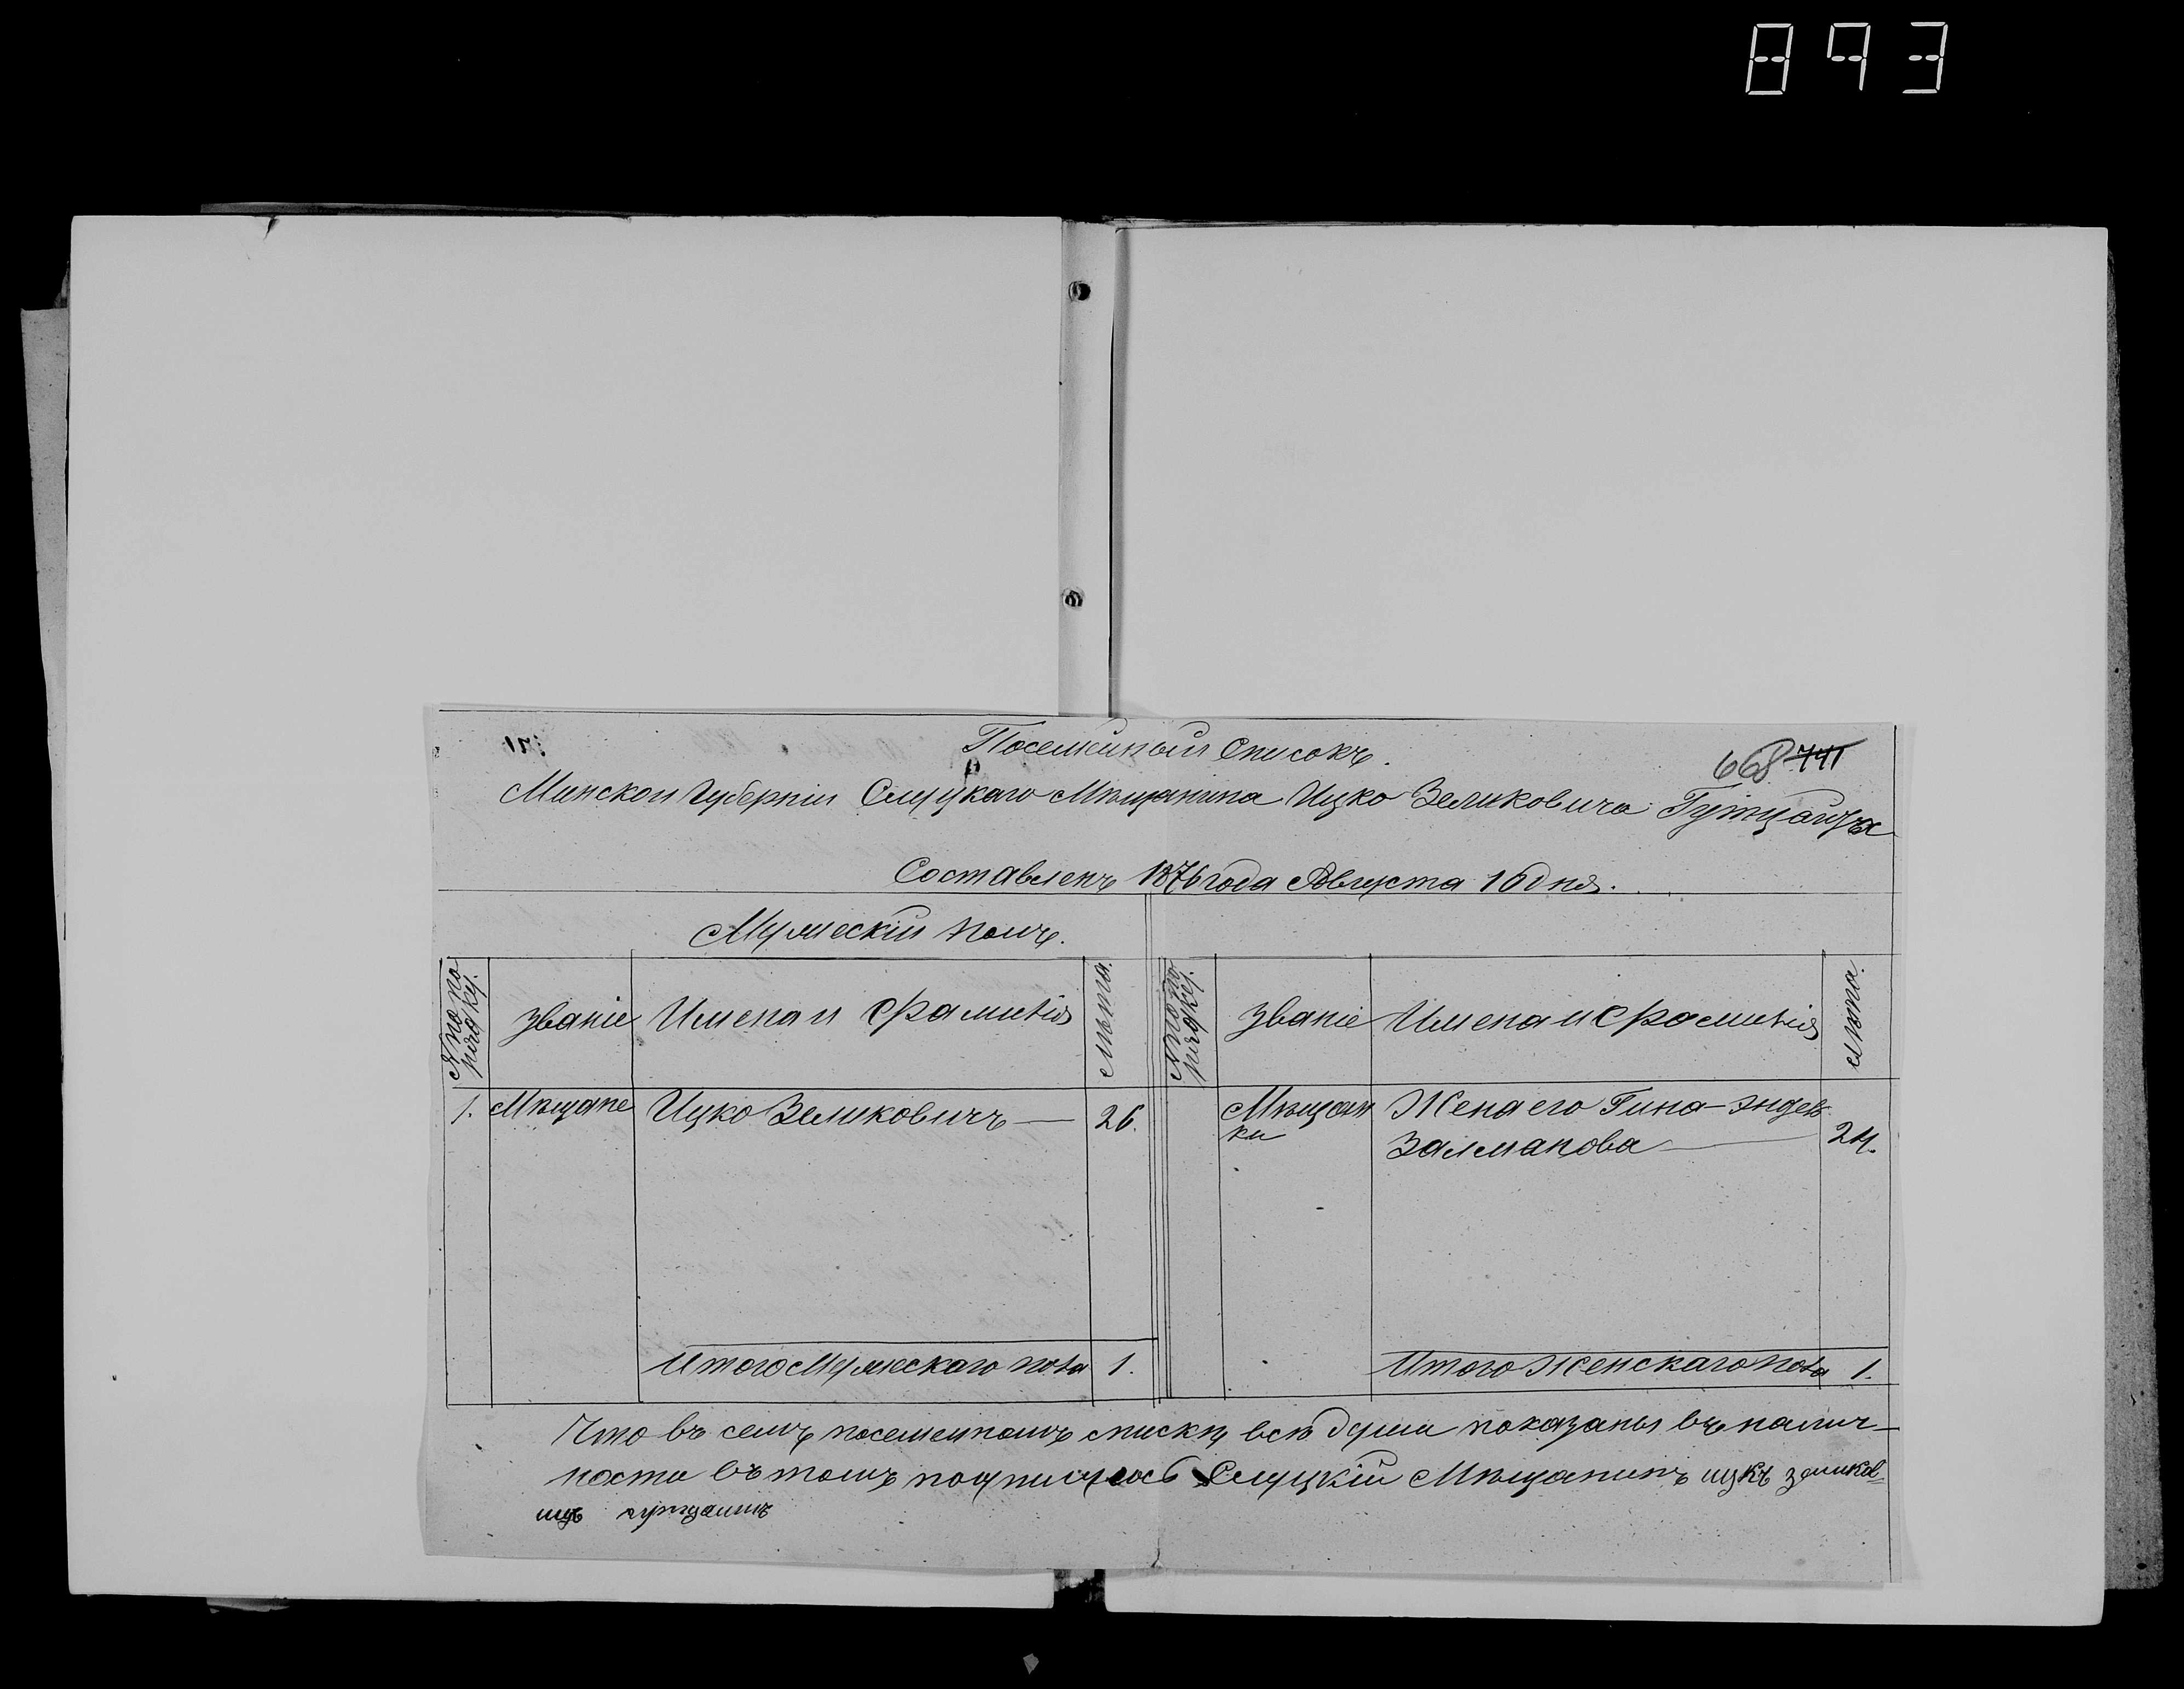 893
Посемейный Списокъ.
668 741
Минской Губерніи Слуцкаго Мѣщанина Ицко Зеликовича Гутцайта
Составленъ 1876 года Августа 16 дня.
Мужескій полъ.
№ по по
рядку.
Званіе
Имена и Фамилія
Лѣта.
№ по по
рядку.
Званіе
Имена и Фамилія
Лѣта.
1. Мѣщане Ицко Зеликовичъ — 26.
Мѣщан
ки
Жена его Гина-Энде
Залманова — 24.
Итого Мужескаго пола 1.
Итого Женскаго пола 1.
Что въ семъ посемейномъ списку всѣ души показаны въ налич-
ности въ томъ подписуюсь Слуцкій Мѣщанинъ ицкъ зеликов-
ицъ гутцаитъ